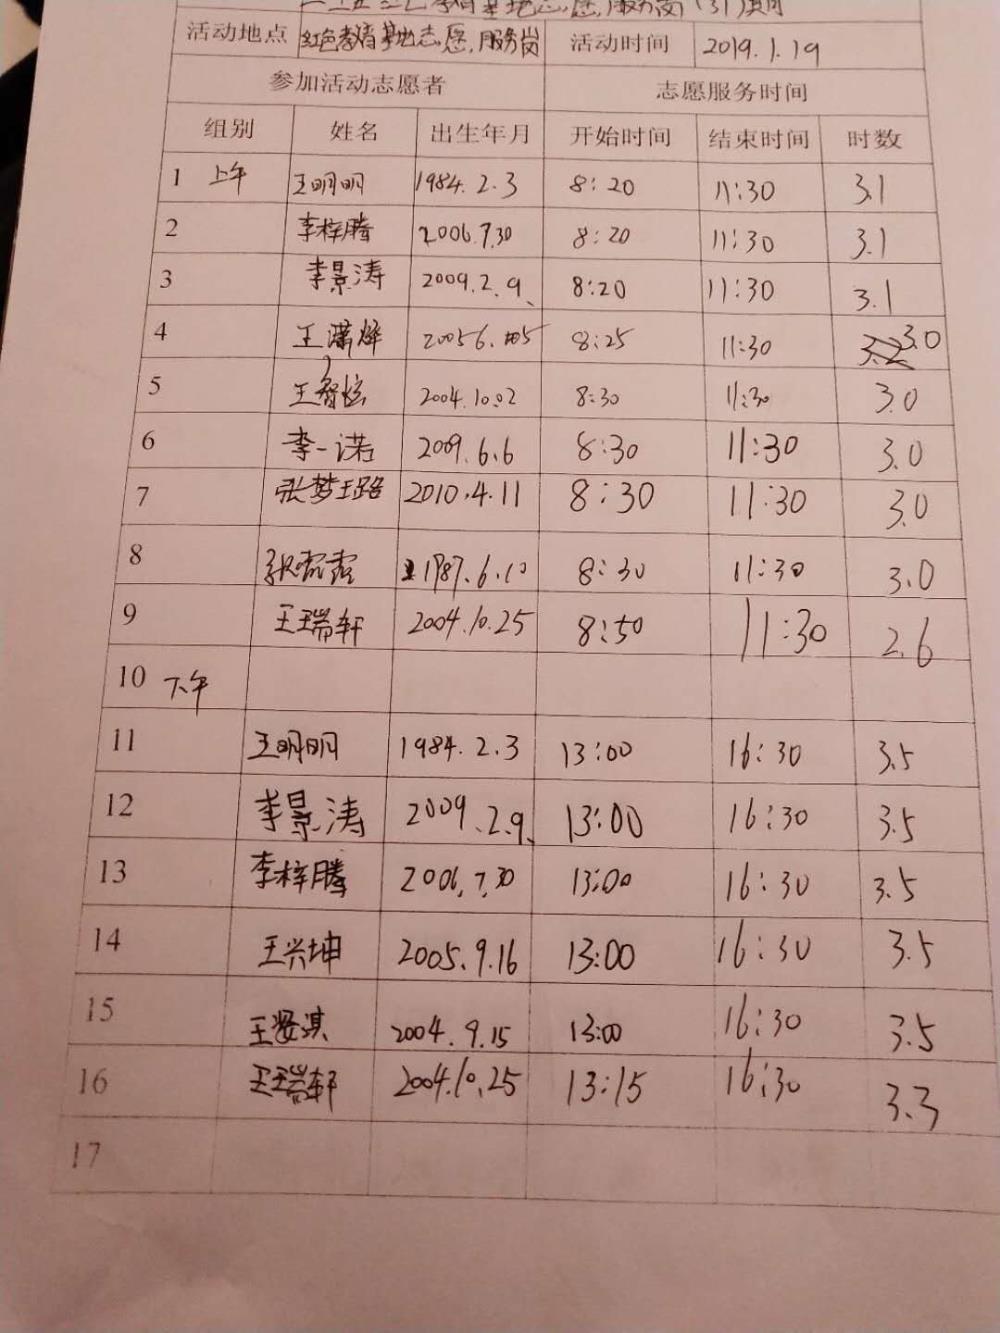 教育基地志愿服务岗(31)期
活动地点 红色教育基地志愿服务岗 活动时间 2019.1.19
参加活动志愿者 志愿服务时间
组别 姓名 出生年月 开始时间 结束时间 时数
1 上午 王明明 1984.2.3 8:20 11:30 3.1
2 李梓腾 2006.7.30 8:20 11:30 3.1
3 李景涛 2009.2.9、 8:20 11:30 3.1
4 王潇烨 20056. 8:25 11:30 3.0
5 王智炫 2004.10.02 8:30 11:30 3.0
6 李一诺 2009.6.6 8:30 11:30 3.0
7 张梦璐 2010.4.11 8:30 11:30 3.0
8 张霏霏 1987.6.10 8:30 11:30 3.0
9 王瑞轩 2004.10.25 8:50 11:30 2.6
10 下午
11 王明明 1984.2.3 13:00 16:30 3.5
12 李景涛 2009.2.9、 13:00 16:30 3.5
13 李梓腾 2006.7.30 13:00 16:30 3.5
14 王兴坤 2005.9.16 13:00 16:30 3.5
15 2004.9.15 13:00 16:30 3.5
16 王瑞轩 2004.10.25 13:15 16:30 3.3
17